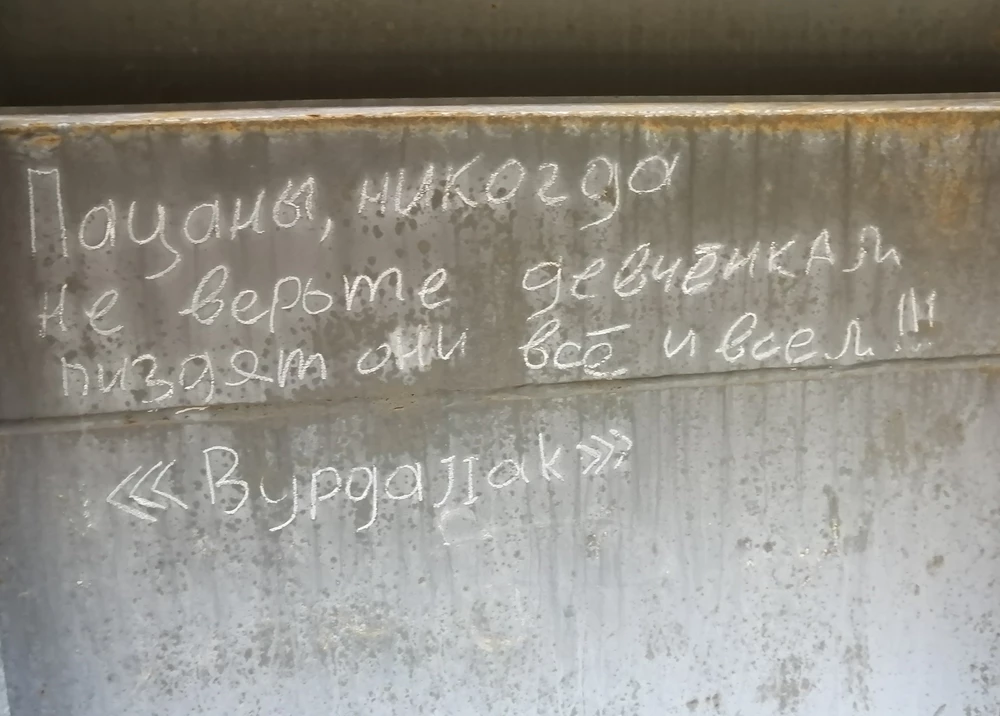 Пацаны, никогда
не верьте девчёнкам
пиздят они всё и всем!!!
<<<Вурдалак>>>